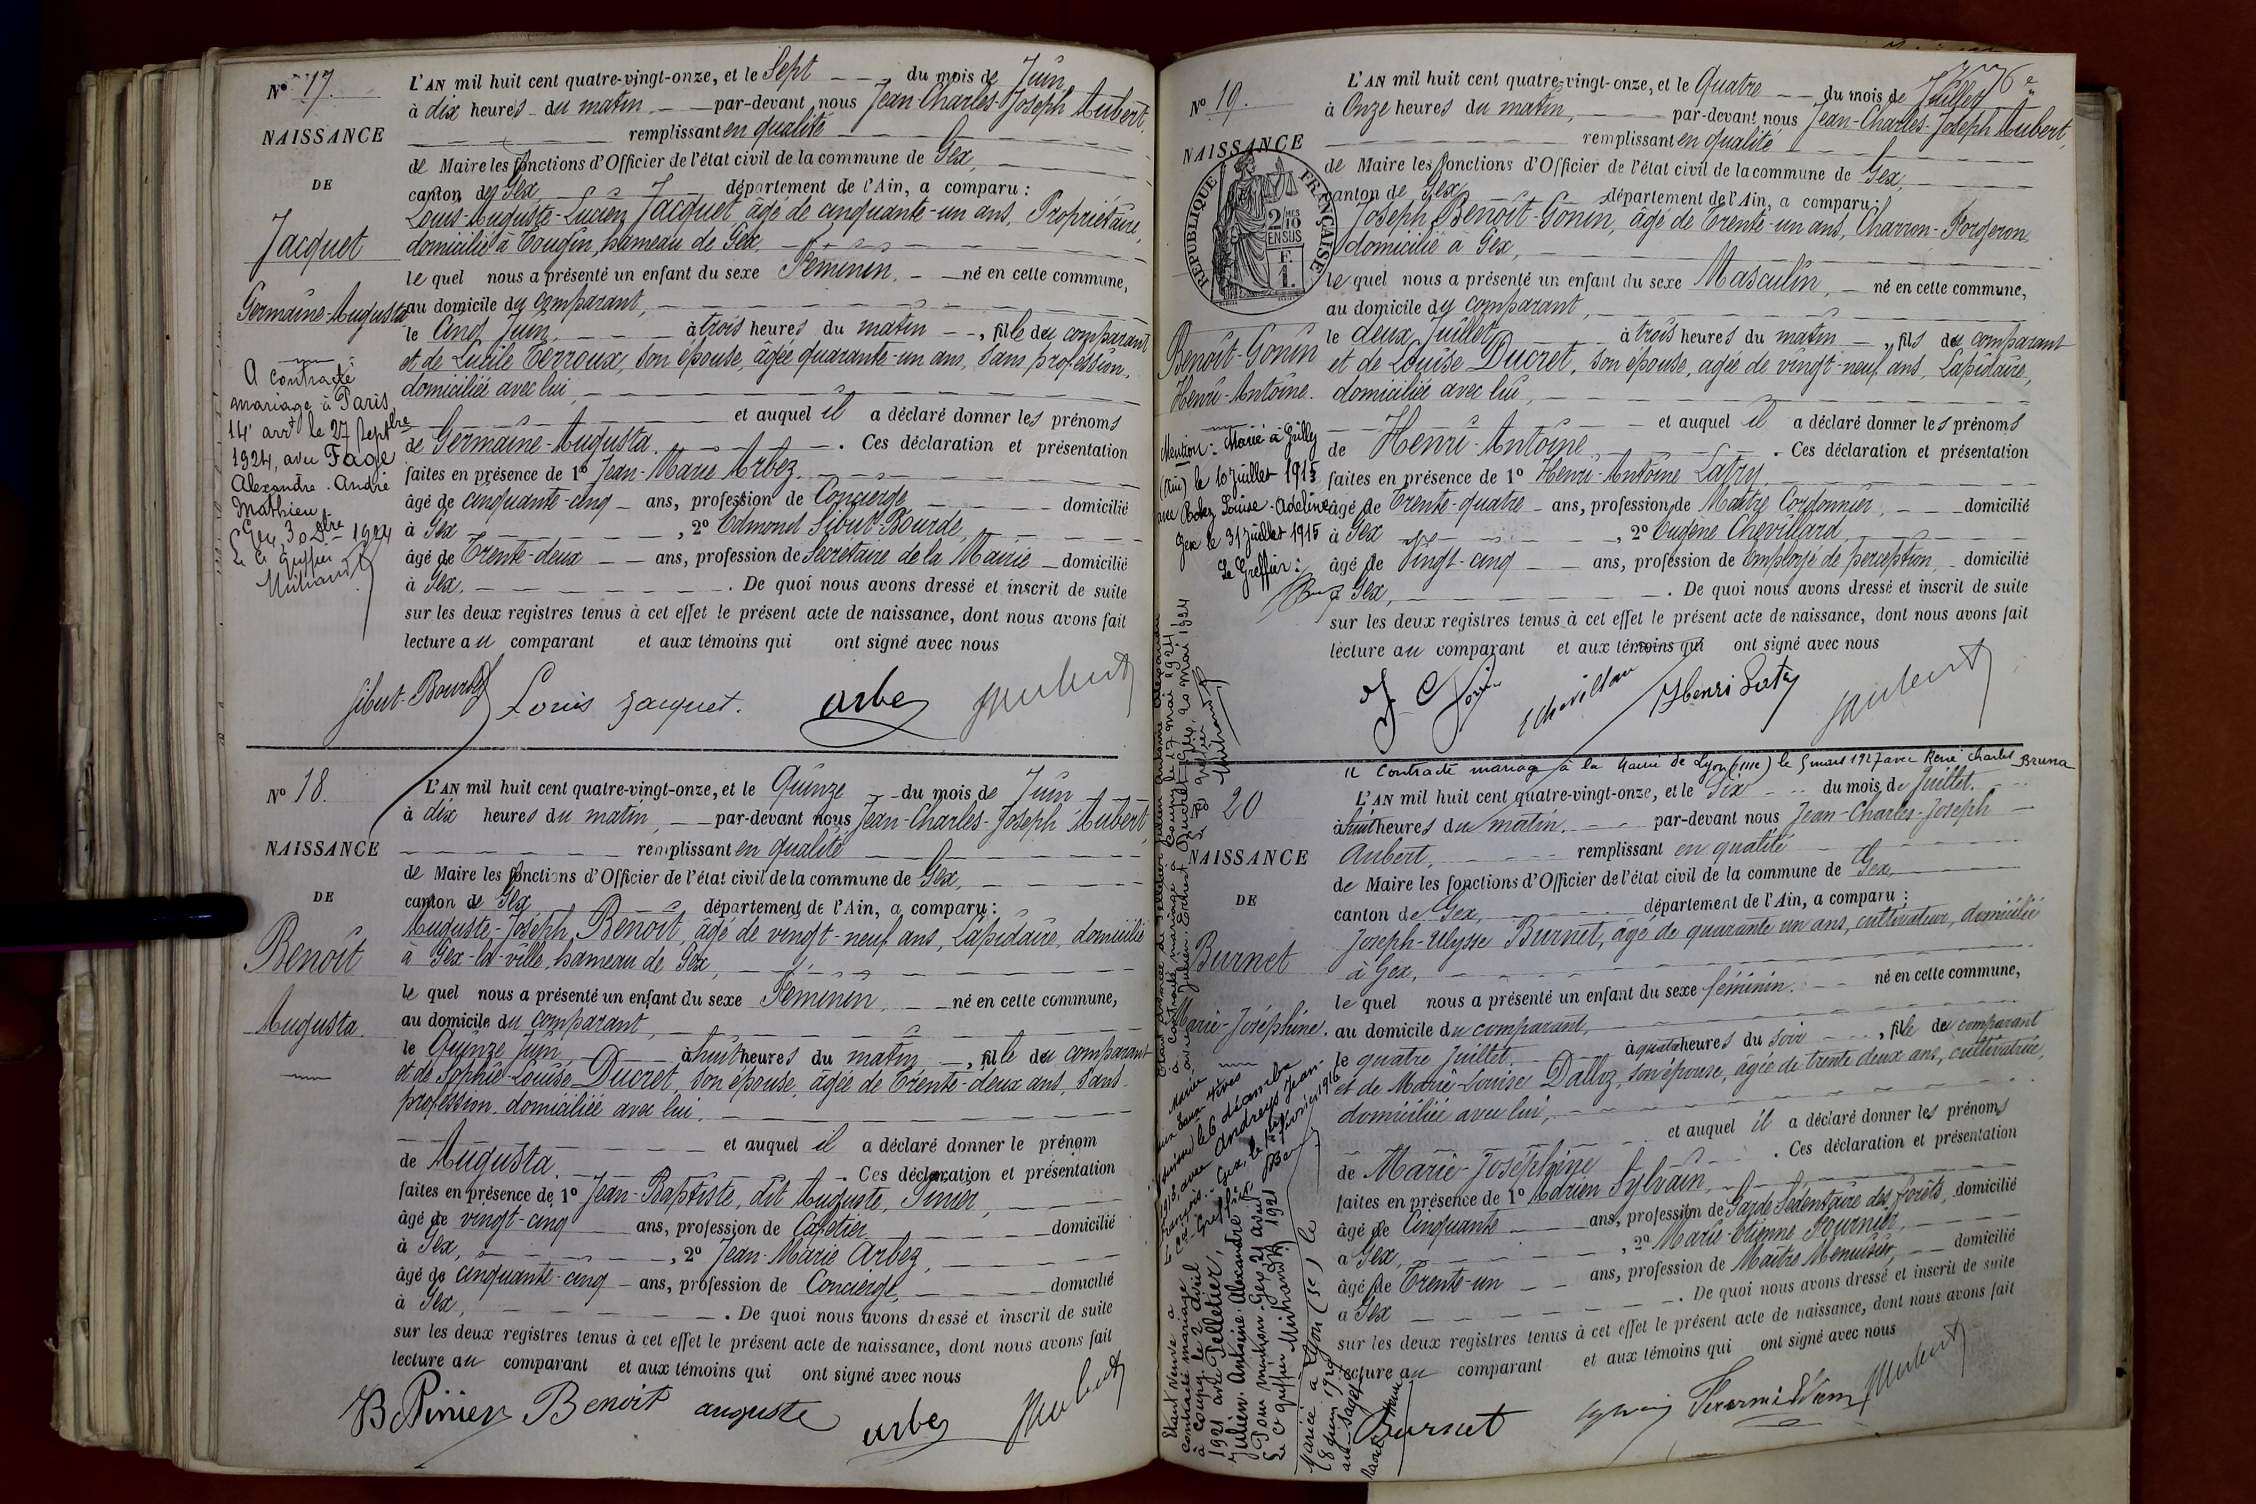 N° 17.
NAISSANCE
DE
Jacquet
Germaine-Augusta
A contracté
mariage à Paris
14e arrt le 27 Septbre
1924, avec Fage
Alexandre-André
Mathieu
Gex, 30 1924
Le Greffier
L'AN mil huit cent quatre-vingt-onze, et le Sept du mois de Juin
à dix heures du matin, par-devant nous Jean-Charles-Joseph Aubert,
remplissant en qualité
de Maire les fonctions d'Officier de l'état civil de la commune de Gex,
canton de Gex département de l'Ain, a comparu :
Louis-Auguste-Lucien Jacquet, âgé de cinquante-un ans, Propriétaire,
domicilié à Tougin, hameau de Gex,
le quel nous a présenté un enfant du sexe Féminin, né en cette commune,
au domicile du comparant,
le Cinq Juin, à trois heures du matin, fille du comparant
et de Lucile Terroux, son épouse, âgée quarante-un ans, sans profession,
domiciliée avec lui,
et auquel il a déclaré donner les prénoms
de Germaine-Augusta. Ces déclaration et présentation
faites en présence de 1° Jean-Marie Arbez,
âgé de cinquante-cinq ans, profession de Concierge domicilié
à Gex, 2° Edmond Sibut-Bourde,
âgé de Trente-deux ans, profession de Secrétaire de la Mairie domicilié
à Gex. De quoi nous avons dressé et inscrit de suite
sur les deux registres tenus à cet effet le présent acte de naissance, dont nous avons fait
lecture au comparant et aux témoins qui ont signé avec nous
Sibut-Bourde Louis Jacquet. Arbez JAubert
N° 18.
NAISSANCE
DE
Benoît
Augusta.
L'AN mil huit cent quatre-vingt-onze, et le Quinze du mois de Juin
à dix heures du matin, par-devant nous Jean-Charles-Joseph Aubert,
remplissant en qualité
de Maire les fonctions d'Officier de l'état civil de la commune de Gex,
canton de Gex département de l'Ain, a comparu :
Auguste-Joseph Benoît, âgé de vingt-neuf ans, Lapidaire, domicilié
à Gex-la-ville, hameau de Gex,
le quel nous a présenté un enfant du sexe Féminin, né en cette commune,
au domicile du comparant,
le Quinze Juin, à huit heures du matin, fille du comparant
et de Sophie-Louise Ducret, son épouse, âgée de Trente-deux ans, sans
profession, domiciliée avec lui,
et auquel il a déclaré donner le prénom
de Augusta. Ces déclaration et présentation
faites en présence de 1° Jean-Baptiste, dit Auguste, Pinier,
âgé de vingt-cinq ans, profession de Cafetier domicilié
à Gex, 2° Jean-Marie Arbez,
âgé de cinquante-cinq ans, profession de Concierge, domicilié
à Gex, De quoi nous avons dressé et inscrit de suite
sur les deux registres tenus à cet effet le présent acte de naissance, dont nous avons fait
lecture au comparant et aux témoins qui ont signé avec nous
JB Pinier Benoit auguste Arbez JAubert
N° 19.
NAISSANCE
RÉPUBLIQUE FRANÇAISE
2/10 EN SUS
F.
1.
Benoît-Gonin
Henri-Antoine.
Mention : Marié à Grilly
(Ain) le 10 juillet 1915
avec Louise-Adeline
Gex le 31 juillet 1915
Le Greffier :
6e
L'AN mil huit cent quatre-vingt-onze, et le Quatre du mois de Juillet
à Onze heures du matin, par-devant nous Jean-Charles-Joseph Aubert,
remplissant en qualité
de Maire les fonctions d'Officier de l'état civil de la commune de Gex,
canton de Gex département de l'Ain, a comparu :
Joseph Benoît-Gonin, âgé de Trente-un ans, Charron-Forgeron
domicilié à Gex,
le quel nous a présenté un enfant du sexe Masculin, né en cette commune,
au domicile du comparant,
le deux Juillet à trois heures du matin, fils du comparant
et de Louise Ducret, son épouse, agée de vingt-neuf ans, Lapidaire,
domiciliée avec lui,
et auquel il a déclaré donner les prénoms
de Henri-Antoine. Ces déclaration et présentation
faites en présence de 1° Henri-Antoine Latry,
âgé de Trente-quatre ans, profession de Maître Cordonnier, domicilié
à Gex, 2° Eugène Chevillard
âgé de Vingt-cinq ans, profession de Employé de perception, domicilié
à Gex, De quoi nous avons dressé et inscrit de suite
sur les deux registres tenus à cet effet le présent acte de naissance, dont nous avons fait
lecture au comparant et aux témoins qui ont signé avec nous
Henri Latry JAubert
Contracté mariage à la Mairie de Lyon (IIIe) le 5 mars 1927 avec René Charles Bruna
20
NAISSANCE
DE
Burnet
Marie-Joséphine.
L'AN mil huit cent quatre-vingt-onze, et le Six du mois de Juillet.
à huit heures du matin. par-devant nous Jean-Charles-Joseph
Aubert, remplissant en qualité
de Maire les fonctions d'Officier de l'état civil de la commune de Gex,
canton de Gex, département de l'Ain, a comparu :
Joseph-Ulysse Burnet, âgé de quarante un ans, cultivateur, domicilié
à Gex,
le quel nous a présenté un enfant du sexe féminin. né en cette commune,
au domicile du comparant,
le quatre Juillet, à quatre heures du soir, fille du comparant
et de Marie-Louise Dalloz, son épouse, âgée de trente deux ans, cultivatrice,
domiciliée avec lui,
et auquel il a déclaré donner les prénoms
de Marie-Joséphine. Ces déclaration et présentation
faites en présence de 1° Adrien Sylvain,
âgé de Cinquante ans, profession de Garde Sédentaire des forêts, domicilié
à Gex, 2° Marie-Etienne Fournier,
âgé de Trente-un ans, profession de Maître Menuisier, domicilié
à Gex. De quoi nous avons dressé et inscrit de suite
sur les deux registres tenus à cet effet le présent acte de naissance, dont nous avons fait
lecture au comparant et aux témoins qui ont signé avec nous
Burnet JAubert
Etant veuve a
contracté mariage
à Coupy le 2 avril
1921 avec Pelletier,
Julien-Antoine-Alexandre
Pour mention: Gex 21 avril
Le Greffier 1921
Mariée à Lyon (5e) le